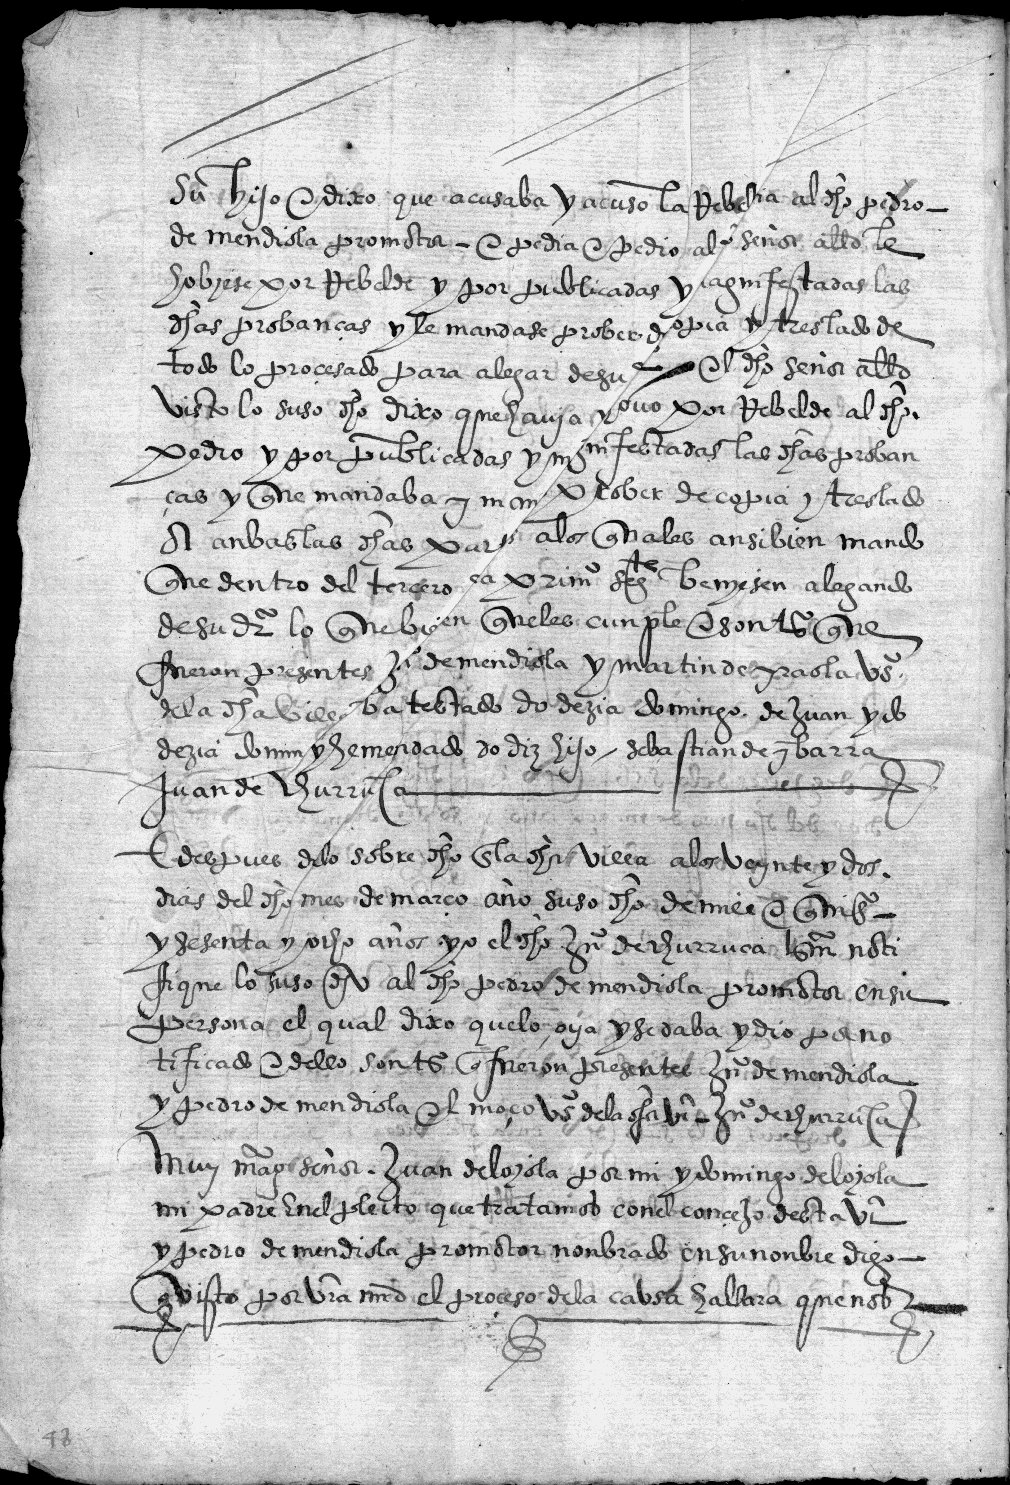 su hijo e dixo que acusaba y acuso la Rebeldia al dho pedro
de mendiola promotor e pedia e pedio al señor allde le
hobiese por Rebelde y por publicadas y magnifestadas las
dhas probanças y le mandase prober de copia y treslado de
todo lo proçesado para alegar de su El dho señor allde
visto lo suso dho dixo que havia y ovo por Rebelde al dho
pedro y por publicadas y magnifestadas las dhas proban
ças y que mandaba y mando prober de copia y treslado
A anbas las dhas partes a los quales ansi bien mando
que dentro del tercero dia primo sigte beniesen alegando
de su dro lo que bien que les cunple e son tos que
fueron presentes Ju de mendiola y martin de yraola vos
de la dha villa ba testado do dezia domingo de Juan y do
dezia domin y hemendado do diz hijo sebastian de ybarra
Juan de churruca
E despues de lo sobre dho en la dha villa a los veynte y dos
dias del dho mes de março año suso dho de mill e quis
y sesenta y ocho años yo el dho Juo de churruca escriuano noti
fique lo suso dho al dho pedro de mendiola promotor en su
persona el qual dixo que lo oya y se daba y dio por no
tificado e dello son tos q fueron presentes Juo de mendiola
y pedro de mendiola el moço vos de la dha va Juo de churruca
Muy magco señor Juan de loyola por mi y domingo de loyola
mi padre en el pleito que tratamos con el conçejo desta va
y pedro de mendiola promotor nonbrado en su nonbre digo
q visto por vra md el proçeso de la cabsa hallara que nos
48